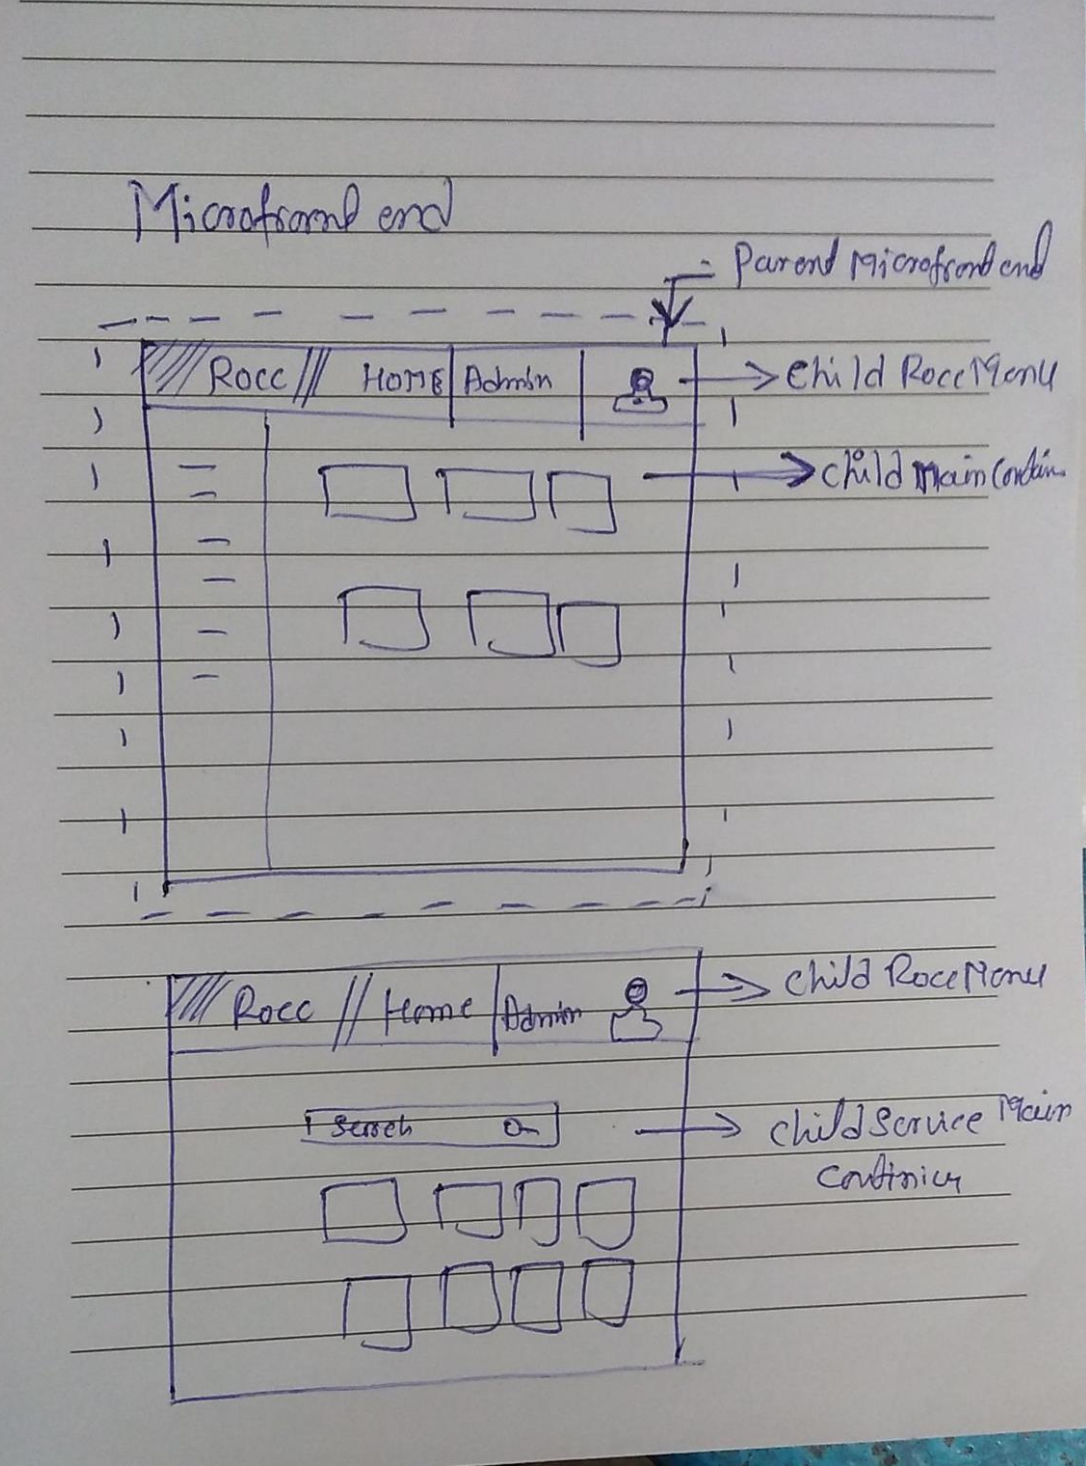 Microfront end
Parend Microfrond end
Rocc HOME Admin
Child Rocc Menu
Child Main Contain
Rocc Home Admin
Child Rocc Menu
Search
Child Service Main